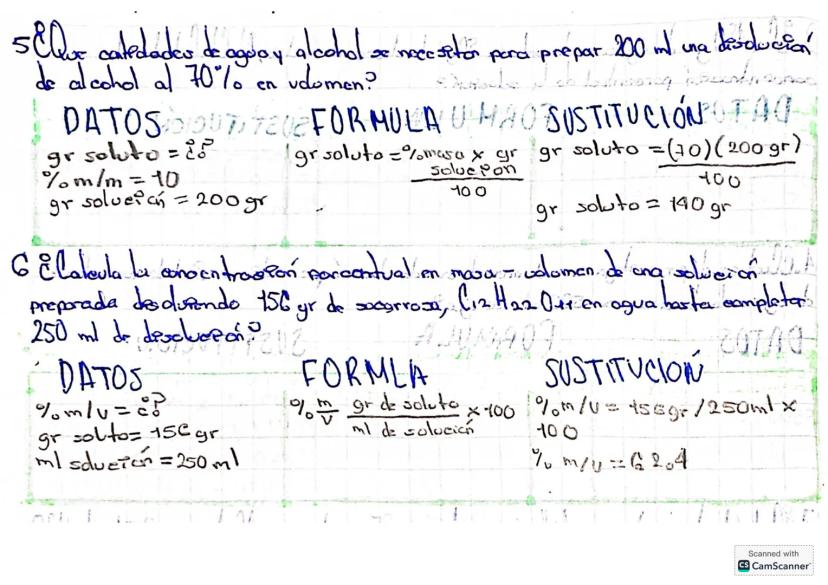 5 ¿Que cantedades de agua y alcohol se necesitan para prepar 200 ml una disolución
de alcohol al 70% en volumen?
DATOS FORMULA SUSTITUCIÓN
gr soluto = ¿? gr soluto = % masa x gr solución / 100 gr soluto = (70)(200 gr) / 100
% m/m = 70
gr solución = 200 gr gr soluto = 140 gr
6 ¿Calcula la concentración porcentual en masa - volumen de una solución
preparada disolviendo 156 gr de sacarrosa, C12 H22 O11 en agua hasta completar
250 ml de disolución?
DATOS FORMLA SUSTITUCION
% m/v = ¿? % m/v gr de soluto / ml de solución x 100 % m/v = 156 gr / 250 ml x
gr solto = 156 gr 100
ml solución = 250 ml % m/v = 62.4
Scanned with
CS CamScanner